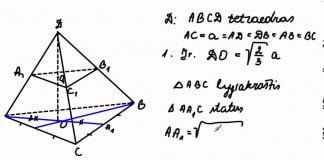 D
A₁
B₁
C₁
O
A₁
A
B
C
D: ABCD tetraedras
AC = a = AD = DB = AB = BC
1. Įr. DO = √(2/3) a
△ABC lygiakraštis
△AA₁C status
AA₁ = √